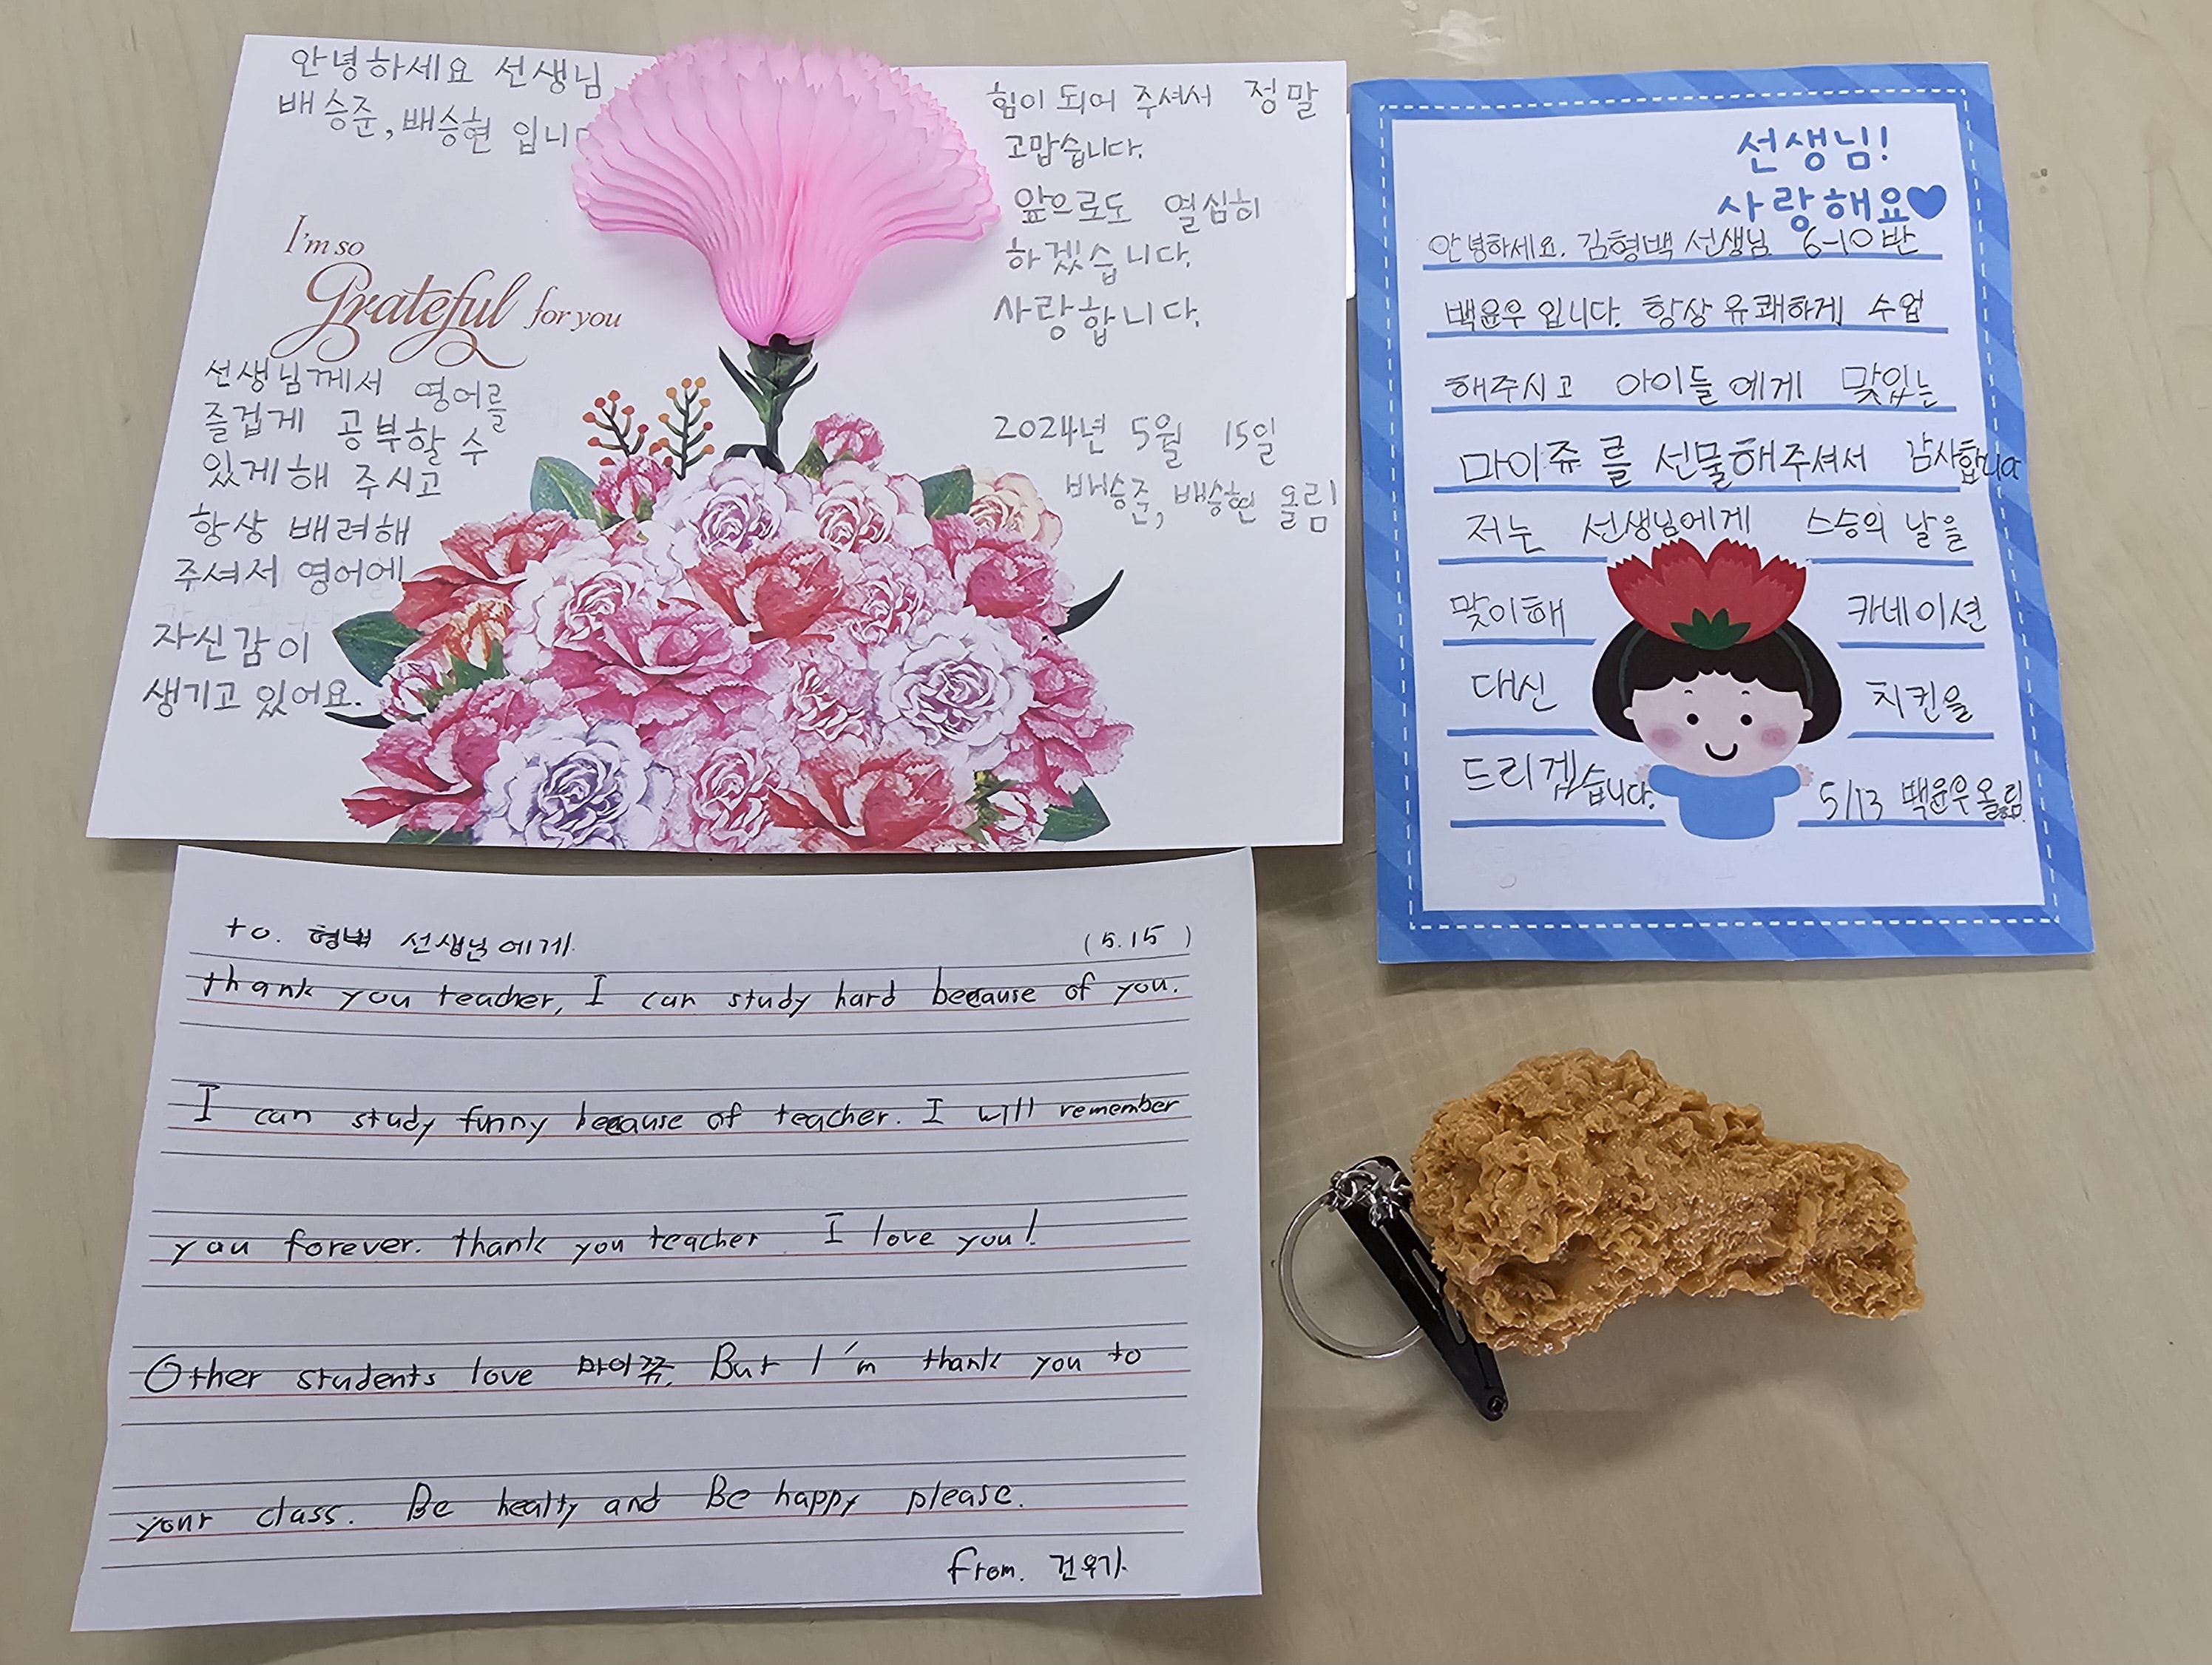 안녕하세요 선생님
배승준, 배승현 입니
I'm so
Grateful for you
선생님께서 영어를
즐겁게 공부할 수
있게 해 주시고
항상 배려해
주셔서 영어에
자신감이
생기고 있어요.
힘이 되어 주셔서 정말
고맙습니다.
앞으로도 열심히
하겠습니다.
사랑합니다.
2024년 5월 15일
배승준, 배승현 올림
선생님!
사랑해요♥
안녕하세요. 김형백 선생님 6-10반
백윤우 입니다. 항상 유쾌하게 수업
해주시고 아이들에게 맞있는
마이쥬를 선물해주셔서 감사합니다
저는 선생님에게 스승의 날을
맞이해 카네이션
대신 치킨을
드리겝습니다.
5/13 백윤우 올림
to. 형백 선생님에게 (5.15)
thank you teacher, I can study hard because of you.
I can study funny because of teacher. I will remember
you forever. thank you teacher I love you!
Other students love 마이쮸. But I'm thank you to
your class. Be healty and Be happy please.
from. 건우가